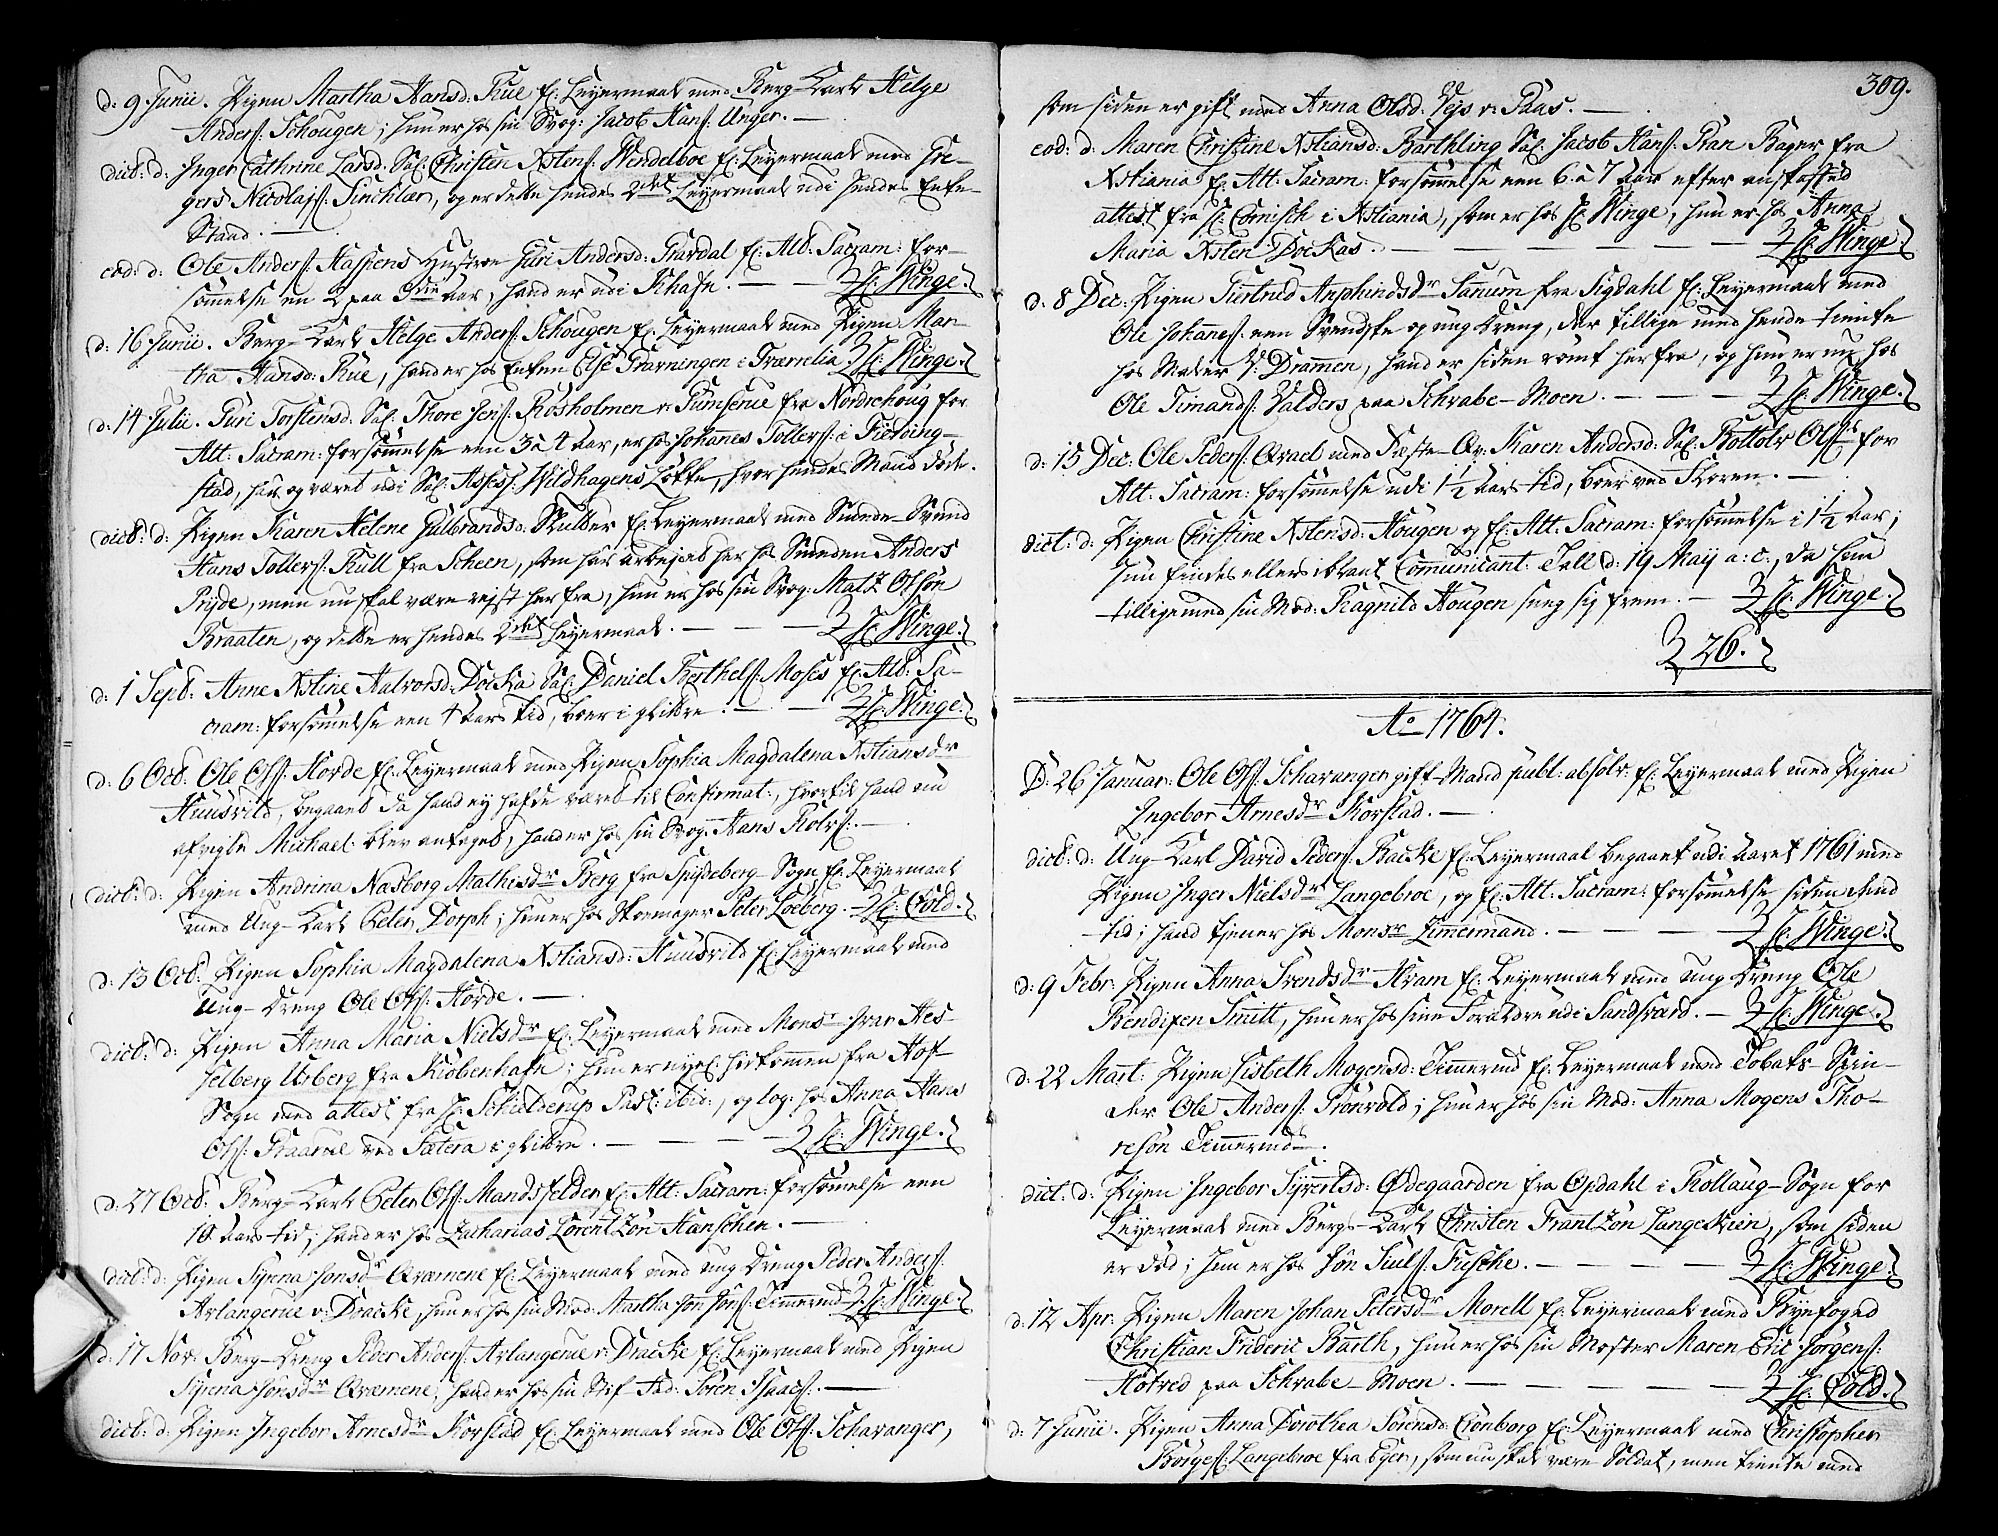 d: 9 Junii. Pigen Martha Hansd: Rue f: Leyermaal med Berg-Karl Helge
Anders: Schougen; hun er hos sin Svog: Jacob Hans: Unger. —
dict: d: Inger Cathrine Larsd: Sal: Christen Xstens: Wendelboe f: Leyermaal med Gre-
gers Nicolajs: Sinchlar, og er dette hendes 2det Leyermaal udi hendes Enke-
Stand. —
eod: d: Ole Anders: Hassens Hustroe Guri Andersd: Grardal f: Alt: Sacram: for-
sömmelse en 2 paa 3die Aar, hand er udi Schafn. — — H: Winge.
d: 16 Junii. Berg-Karl Helge Anders: Schougen f: Leyermaal med Pigen Mar-
tha Hansd: Rue, hand er hos Enken Else Gravningen i Tværrelia H: Winge.
d: 14 Julii. Guri Torstensd: Sal: Thore Jens: Rosholmen v: Gumserue fra Nordrehoug for
Alt: Sacram: forsömmelse een 3 a 4 Aar, er hos Johannes Tollers: i Fierding-
stad, har og været udi Sal: Assess: Wildhagens Lökke, hvor hendes Mand döde.
dict: d: Pigen Karen Helene Gulbrandsd: Skutter f: Leyermaal med Smede-Svend
Hans Tollers: Kull fra Scheen, som har arbejdet her hos Smeden Anders
Pryde, men nu skal være rejst herfra, hun er hos sin Svog: Mats Olsön
Braaten, og dette er hendes 2det Leyermaal. — — — H: Winge.
d: 1 Sept: Anne Xstine Halvorsd: Docka Sal: Daniel Berthels: Moses f: Alt: Sa-
cram: forsömmelse een 4 Aars tid, boer i gkldre. — — H: Winge.
d: 6 Oct: Ole Ols: Horde f: Leyermaal med Pigen Sophia Magdalena Xstiansdr
Huusvild, begaaet da hand ej hafde været til Confirmat:, hvortil hand nu
afvigte Michael: blev antaget, hand er hos sin Svog: Hans Rolvs: —
dict: d: Pigen Andrina Nasborg Mathisdr Berg fra Spydeberg-Sogn f: Leyermaal
med Ung-Karl Peter Dorph; hun er hos Skoemager Peter Loeberg. — H: Cold.
d: 13 Oct: Pigen Sophia Magdalena Xstiansd: Huusvild f: Leyermaal med
Ung-Dreng Ole Ols: Horde. —
dict: d: Pigen Anna Maria Nielsdr f: Leyermaal med Monsr Ivar Hes-
selberg Urberg fra Kiöbenhafn; hun er nyel: hidkommen fra Hof-
Sogn med attest fra H: Schielderup Past: ibid:, og log: hos Anna Hans
Ols: Graarue ved Sætera i gkldre. — — — — H: Winge.
d: 27 Oct: Berg-Karl Peter Ols: Mandsfelder f: Alt: Sacram: forsömmelse een
10 Aars tid; hand er hos Zacharias LorentZön Hanschen. —
dict: d: Pigen Synna Jonsdr Qvæmene f: Leyermaal med ung Dreng Peder Anders:
Arlangerue v: Dracke, hun er hos sin Mod: Martha Jon Jons: Timerud H: Winge.
d: 17 Nov: Berg-Dreng Peder Anders: Arlangerue v: Dracke f: Leyermaal med Pigen
Synna Jonsdr Qvæmene, hand er hos sin Stif-Fad: Sören Isaacs: —
dict: d: Pigen Ingebor Arnesdr Korstad f: Leyermaal med Ole Ols: Schavanger,
309.
som siden er gift med Anna Olsd: Vejs v: Saas. —
eod: d: Maren Christine Xstiansd: Barthling Sal: Jacob Hans: Ran Bager fra
Xstiania f: Alt: Sacram: forsömmelse een 6 a 7 Aar efter anskaffed
attest fra H: Cornisch i Xstiania, som er hos H: Winge, hun er hos Anna
Maria Xsten Dockas. — — — — — — — H: Winge
d: 8 Dec: Pigen Giertrud Amphindsdr Sanum fra Sigdahl f: Leyermaal med
Ole Johannes: een Svendske og ung Dreng, der tillige med hende tiente
hos Maler V: Drammen, hand er siden römt herfra, og hun er nu hos
Ole Timands: Valders paa Schrabe-Moen. — — — H: Winge.
d: 15 Dec: Ole Peders: Qvael med Fæste-Qv: Karen Andersd: Sal: Rottolv Olsens for
Alt: Sacram: forsömmelse udi 1 1/2 Aars tid, boer ved Floren. —
dict: d: Pigen Christine Xstensd: Hougen og f: Alt: Sacram: forsömmelse i 1 1/2 Aar;
hun findes ellers iblant Communicant: Tall d: 19 Maij a: c:, da hun
tillige med sin Mod: Ragnild Hougen sneg sig frem. — H: Winge.
26.
Ao 1764.
D: 26 Januar: Ole Ols: Schavanger gift-Mand publ: absolv: f: Leyermaal med Pigen
Ingebor Arnesdr Korstad. —
dict: d: Ung-Karl David Peders: Backe f: Leyermaal begaaet udi Aaret 1761 med
Pigen Inger Nielsdr Langebroe, og f: Alt: Sacram: forsömmelse siden den
tid; hand tiener hos Monsr Zimmermand. — — — H: Winge.
d: 9 Febr: Pigen Anna Svendsdr Hvam f: Leyermaal med ung Dreng Ole
Bendixen Smitt, hun er hos sine Forældre udi Sandsværd. — H: Winge.
d: 22 Mart: Pigen Lisbeth Mogensd: Timerud f: Leyermaal med Tobaks-Spin-
der Ole Anders: Grönvold; hun er hos sin Mod: Anna Mogens Tho-
resön Timerud. —
dict: d: Pigen Ingebor Syvertsd: Ødegaarden fra Opdahl i Rollaug-Sogn for
Leyermaal med Bergs-Karl Christen FrantZön Langeskien, som siden
er död; hun er hos Jön Juuls: Fusche. — — — — H: Winge
d: 12 Apr: Pigen Maren Johan Petersdr Morell f: Leyermaal med Byefoged
Christian Frideric Barth, hun er hos sin Moster Maren Eric Jörgens:
Hofred paa Schrabe-Moen. — — — — — — H: Cold.
d: 7 Junii. Pigen Anna Dorothea Sörensd: Cronborg f: Leyermaal med Christopher
Börges: Langebroe fra Eger, som nu skal være Soldat, men tiente med